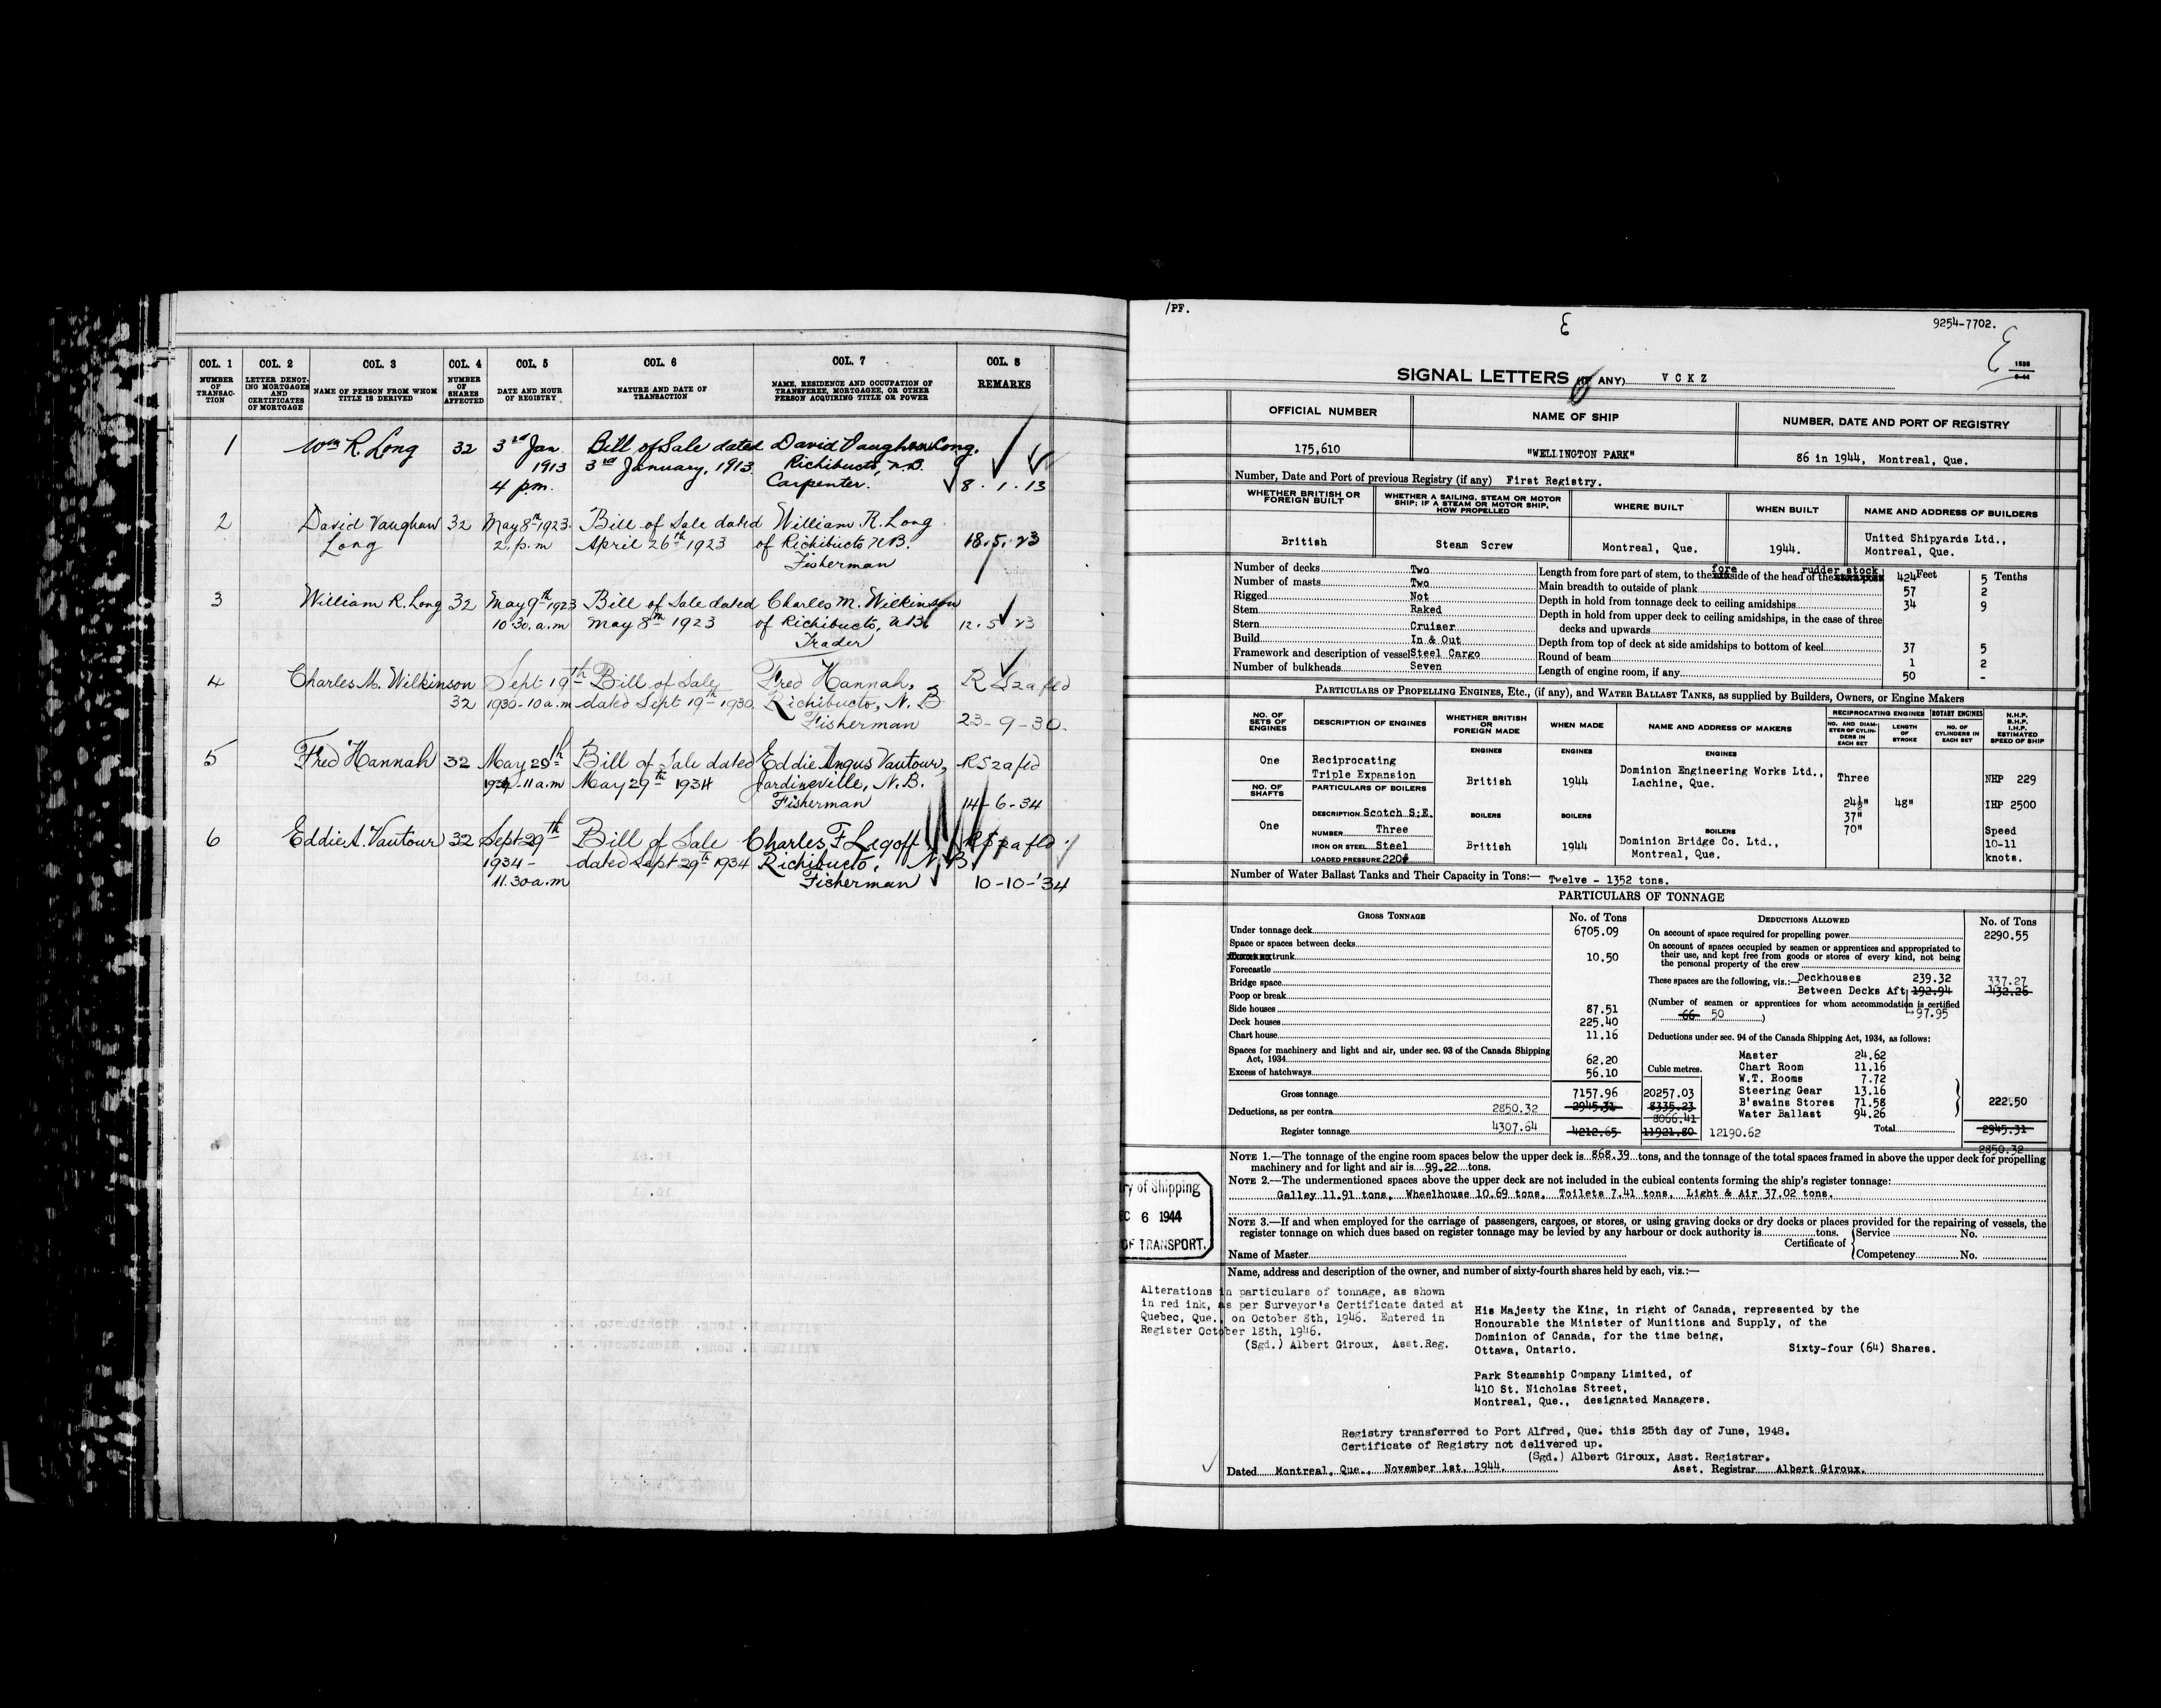 COL. 1 COL. 2 COL. 3 COL. 4 COL. 5 COL. 6 COL. 7 COL. 8
NUMBER OF TRANSACTION
LETTER DENOTING MORTGAGES AND CERTIFICATES OF MORTGAGE
NAME OF PERSON FROM WHOM TITLE IS DERIVED
NUMBER OF SHARES AFFECTED
DATE AND HOUR OF REGISTRY
NATURE AND DATE OF TRANSACTION
NAME, RESIDENCE AND OCCUPATION OF TRANSFEREE, MORTGAGEE, OR OTHER PERSON ACQUIRING TITLE OR POWER
REMARKS
1 Wm R. Long 32 3rd Jan Bill of Sale dated David Vaughan Long,
1913 3rd January, 1913. Richibucto, N.B.
4 p.m. Carpenter. 8.1.13
2 David Vaughan 32 May 8th 1923 Bill of Sale dated William R. Long
Long 2. p.m April 26th 1923 of Richibucto N.B. 18.5.23
Fisherman
3 William R. Long 32 May 9th 1923 Bill of Sale dated Charles M. Wilkinson
10.30. a.m May 8th 1923 of Richibucto, N.B. 12.5.23
Trader
4 Charles M. Wilkinson Sept 19th Bill of Sale Fred Hannah,
32 1930-10 a.m dated Sept 19th 1930. Richibucto, N.B
Fisherman 23-9-30.
5 Fred Hannah 32 May 29th Bill of Sale dated Eddie Angus Vautour,
1934-11 a.m May 29th 1934 Jardineville, N.B.
Fisherman 14-6-34
6 Eddie A. Vautour 32 Sept 29th Bill of Sale Charles F Legoff
1934- dated Sept 29th 1934 Richibucto, N.B
11.30 a.m Fisherman 10-10-'34
/PF.
E
9254-7702.
E
SIGNAL LETTERS (IF ANY) V C K Z
OFFICIAL NUMBER NAME OF SHIP NUMBER, DATE AND PORT OF REGISTRY
175,610 "WELLINGTON PARK" 86 in 1944, Montreal, Que.
Number, Date and Port of previous Registry (if any) First Registry.
WHETHER BRITISH OR FOREIGN BUILT
WHETHER A SAILING, STEAM OR MOTOR SHIP; IF A STEAM OR MOTOR SHIP, HOW PROPELLED
WHERE BUILT
WHEN BUILT
NAME AND ADDRESS OF BUILDERS
British Steam Screw Montreal, Que. 1944. United Shipyards Ltd.,
Montreal, Que.
Number of decks Two
Number of masts Two
Rigged Not
Stem Raked
Stern Cruiser
Build In & Out
Framework and description of vessel Steel Cargo
Number of bulkheads Seven
fore rudder stock
Length from fore part of stem, to the side of the head of the 424 Feet 5 Tenths
Main breadth to outside of plank 57 2
Depth in hold from tonnage deck to ceiling amidships 34 9
Depth in hold from upper deck to ceiling amidships, in the case of three
decks and upwards
Depth from top of deck at side amidships to bottom of keel 37 5
Round of beam 1 2
Length of engine room, if any 50 -
PARTICULARS OF PROPELLING ENGINES, ETC., (if any), and WATER BALLAST TANKS, as supplied by Builders, Owners, or Engine Makers
NO. OF SETS OF ENGINES
DESCRIPTION OF ENGINES
WHETHER BRITISH OR FOREIGN MADE
WHEN MADE
NAME AND ADDRESS OF MAKERS
RECIPROCATING ENGINES ROTARY ENGINES
NO. AND DIAMETER OF CYLINDERS IN EACH SET
LENGTH OF STROKE
NO. OF CYLINDERS IN EACH SET
N.H.P. B.H.P. I.H.P. ESTIMATED SPEED OF SHIP
ENGINES ENGINES ENGINES
One Reciprocating
Triple Expansion British 1944 Dominion Engineering Works Ltd.,
Lachine, Que. Three NHP 229
NO. OF SHAFTS
PARTICULARS OF BOILERS
24½" 48" IHP 2500
37"
70"
DESCRIPTION Scotch S.E. BOILERS BOILERS BOILERS
One NUMBER Three
IRON OR STEEL Steel British 1944 Dominion Bridge Co. Ltd.,
Montreal, Que.
LOADED PRESSURE 220#
Speed
10-11
knots.
Number of Water Ballast Tanks and Their Capacity in Tons:— Twelve - 1352 tons.
PARTICULARS OF TONNAGE
GROSS TONNAGE No. of Tons DEDUCTIONS ALLOWED No. of Tons
Under tonnage deck 6705.09
Space or spaces between decks
trunk 10.50
Forecastle
Bridge space
Poop or break
Side houses 87.51
Deck houses 225.40
Chart house 11.16
Spaces for machinery and light and air, under sec. 93 of the Canada Shipping
Act, 1934 62.20
Excess of hatchways 56.10
Gross tonnage 7157.96 20257.03
Deductions, as per contra 2850.32 2945.31 8335.23
8066.41
Register tonnage 4307.64 4212.65 11921.80 12190.62
On account of space required for propelling power 2290.55
On account of spaces occupied by seamen or apprentices and appropriated to
their use, and kept free from goods or stores of every kind, not being
the personal property of the crew
These spaces are the following, viz.:— Deckhouses 239.32 337.27
Between Decks Aft 192.94 432.26
(Number of seamen or apprentices for whom accommodation is certified
66 50 ) 97.95
Deductions under sec. 94 of the Canada Shipping Act, 1934, as follows:
Cubic metres.
Master 24.62
Chart Room 11.16
W.T. Rooms 7.72
Steering Gear 13.16
B'swains Stores 71.58 222.50
Water Ballast 94.26
Total 2945.31
2850.32
NOTE 1.—The tonnage of the engine room spaces below the upper deck is 868.39 tons, and the tonnage of the total spaces framed in above the upper deck for propelling
machinery and for light and air is 99.22 tons.
NOTE 2.—The undermentioned spaces above the upper deck are not included in the cubical contents forming the ship's register tonnage:
Galley 11.91 tons. Wheelhouse 10.69 tons. Toilets 7.41 tons. Light & Air 37.02 tons.
NOTE 3.—If and when employed for the carriage of passengers, cargoes, or stores, or using graving docks or dry docks or places provided for the repairing of vessels, the
register tonnage on which dues based on register tonnage may be levied by any harbour or dock authority is tons.
Certificate of Service No.
Competency No.
Name of Master
ry of Shipping
EC 6 1944
OF TRANSPORT.
Name, address and description of the owner, and number of sixty-fourth shares held by each, viz.:—
Alterations in particulars of tonnage, as shown
in red ink, as per Surveyor's Certificate dated at
Quebec, Que., on October 8th, 1946. Entered in
Register October 18th, 1946.
(Sgd.) Albert Giroux, Asst.Reg.
His Majesty the King, in right of Canada, represented by the
Honourable the Minister of Munitions and Supply, of the
Dominion of Canada, for the time being,
Ottawa, Ontario. Sixty-four (64) Shares.
Park Steamship Company Limited, of
410 St. Nicholas Street,
Montreal, Que., designated Managers.
Registry transferred to Port Alfred, Que. this 25th day of June, 1948.
Certificate of Registry not delivered up.
(Sgd.) Albert Giroux, Asst. Registrar.
Dated Montreal, Que., November 1st, 1944. Asst. Registrar Albert Giroux.